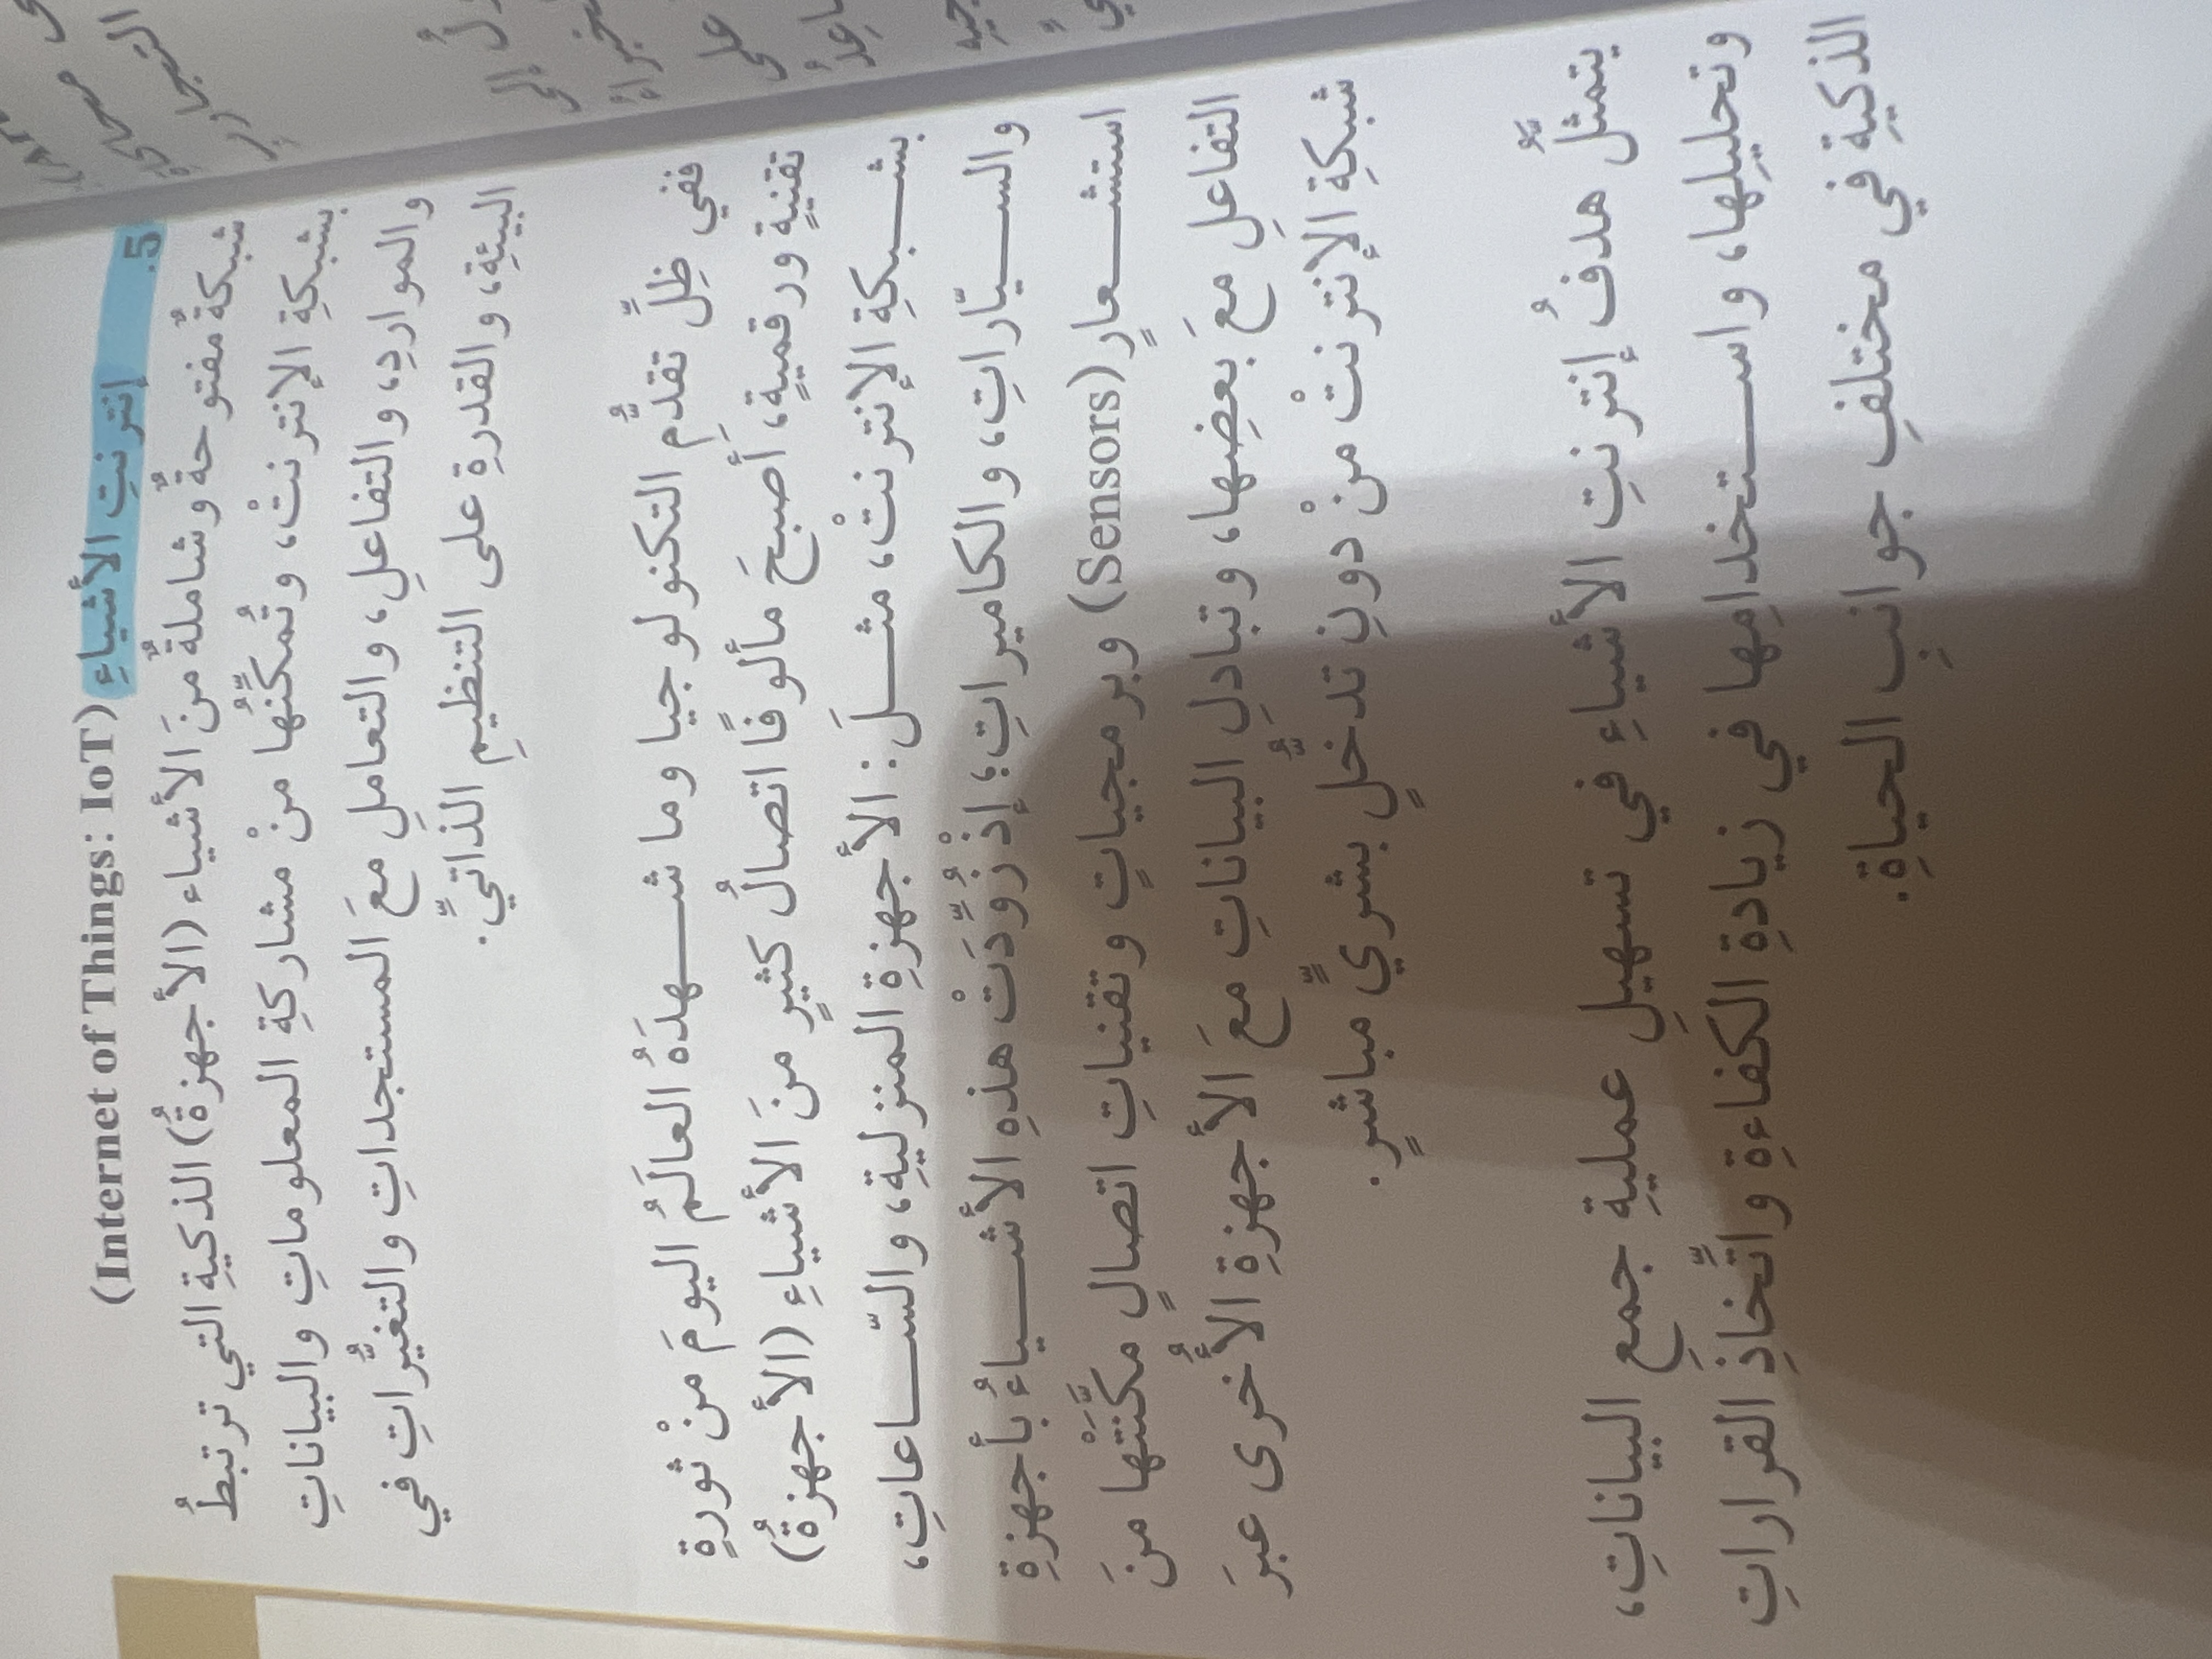 5. إنترنتِ الأشياءِ (Internet of Things: IoT)
شبكةٌ مفتوحةٌ وشاملةٌ منَ الأشياء (الأجهزةُ) الذكيةِ التي ترتبطُ
بشبكةِ الإنترنتْ، وتُمكِّنُها منْ مشاركةِ المعلوماتِ والبياناتِ
والمواردِ، والتفاعلِ، والتعاملِ معَ المستجداتِ والتغيُّراتِ في
البيئةِ، والقدرةِ على التنظيمِ الذاتيِّ.
ففي ظِلِّ تقدُّمِ التكنولوجيا وما شـهدَهُ العالَمُ اليومَ منْ ثورةٍ
تقنيةٍ ورقميةٍ، أصبحَ مألوفًا اتصالُ كثيرٍ منَ الأشياءِ (الأجهزةُ)
بشـبكةِ الإنترنتْ، مثـلَ: الأجهزةِ المنزليةِ، والسّـاعاتِ،
والسـيّاراتِ، والكاميراتِ؛ إذْ زُوِّدَتْ هذهِ الأشـياءُ بأجهزةِ
استشـعارٍ (Sensors) وبرمجياتٍ وتقنياتِ اتصالٍ مكَّنَتْها منَ
التفاعلِ معَ بعضِها، وتبادلِ البياناتِ معَ الأجهزةِ الأُخرى عبرَ
شبكةِ الإنترنتْ منْ دونِ تدخُّلٍ بشريٍّ مباشرٍ.
يتمثَّلُ هدفُ إنترنتِ الأشياءِ في تسهيلِ عمليةِ جمعِ البياناتِ،
وتحليلِها، واسـتخدامِها في زيادةِ الكفاءةِ واتِّخاذِ القراراتِ
الذكيةِ في مختلفِ جوانبِ الحياةِ.